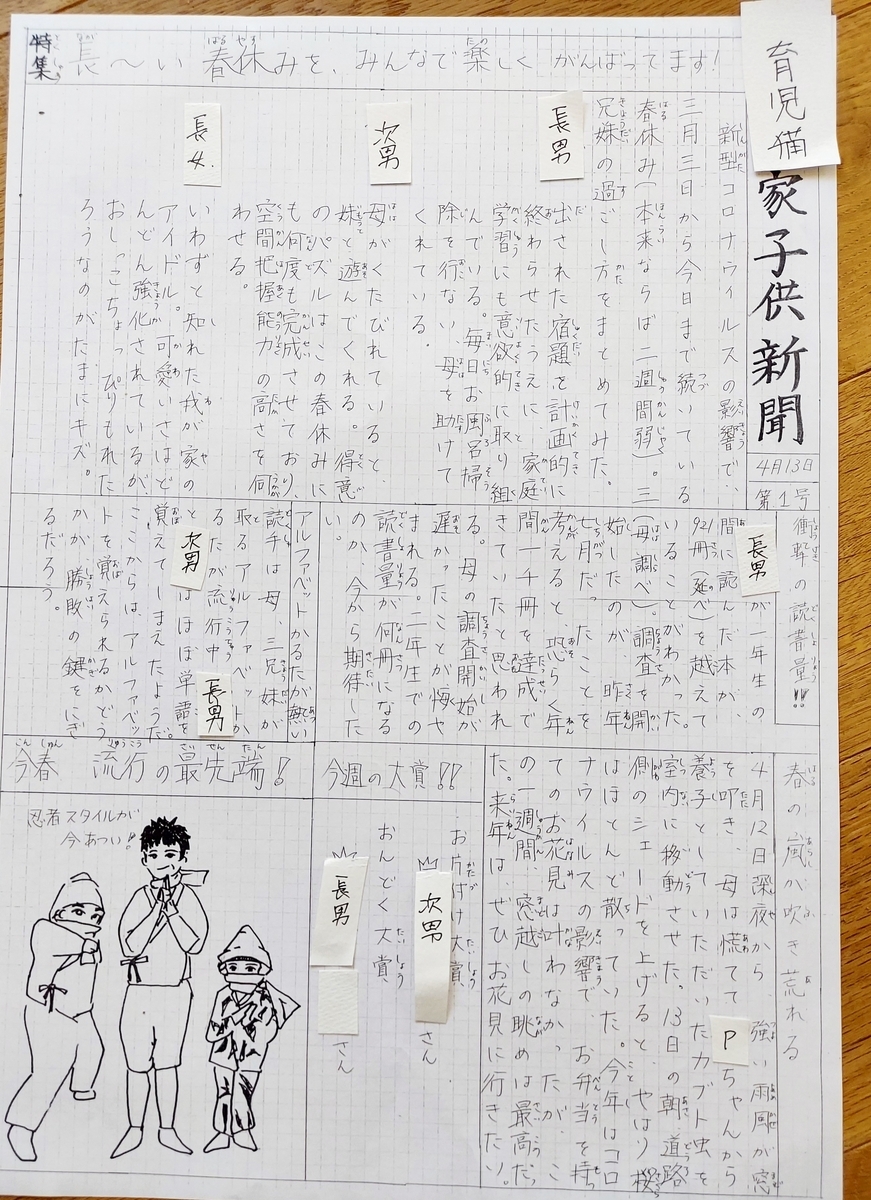 育児猫
家子供新聞
4月13日
第1号
特集 長〜い 春休みを、みんなで楽しく がんばってます!
新型コロナウイルスの影響で、
三月三日から今日まで続いている
春休み(本来ならば二週間弱)。三
兄妹の過ごし方をまとめてみた。
長男
出された宿題を計画的に
終わらせたうえに、家庭
学習にも意欲的に取り組
んでいる。毎日お風呂掃
除を行ない、母を助けて
くれている。
次男
母がくたびれていると、
妹と遊んでくれる。得意
のパズルはこの春休みに
も何度も完成させており、
空間把握能力の高さを伺
わせる。
長女
いわずと知れた我が家の
アイドル。可愛いさはど
んどん強化されているが、
おしっこちょっぴりもれた
ろうなのがたまにキズ。
衝撃の読書量!!
長男が一年生の
間に読んだ本が
921冊(延べ)を越えて
いることがわかった。
(母調べ)。調査を開
始したのが、昨年
七月だったことを
考えると、恐らく年
間一千冊を達成で
きていたと思われ
る。母の調査開始が
遅かったことが悔や
まれる。二年生での
読書量が何冊になる
のか、今から期待した
い。
アルファベットかるたが熱い
読手は母、三兄妹が
取るアルファベットか
るたが流行中。長男
と次男はほぼ単語を
覚えてしまえたようだ。
ここからは、アルファベッ
トを覚えられるかどう
かが、勝敗の鍵をにぎ
るだろう。
春の嵐が吹き荒れる
4月12日深夜から、強い雨風が窓
を叩き、母は慌ててPちゃんから
養子としていただいたカブト虫を
室内に移動させた。13日の朝、道路
側のシェードを上げると、やはり桜
はほとんど散っていた。今年はコロ
ナウイルスの影響で、お弁当を持っ
てのお花見は叶わなかったが、こ
の一週間、窓越しの眺めは最高だっ
た。来年は、ぜひお花見に行きたい。
今週の大賞!!
お片付け大賞
次男さん
おんどく大賞
長男さん
今春 流行の最先端!
忍者スタイルが
今あつい!!